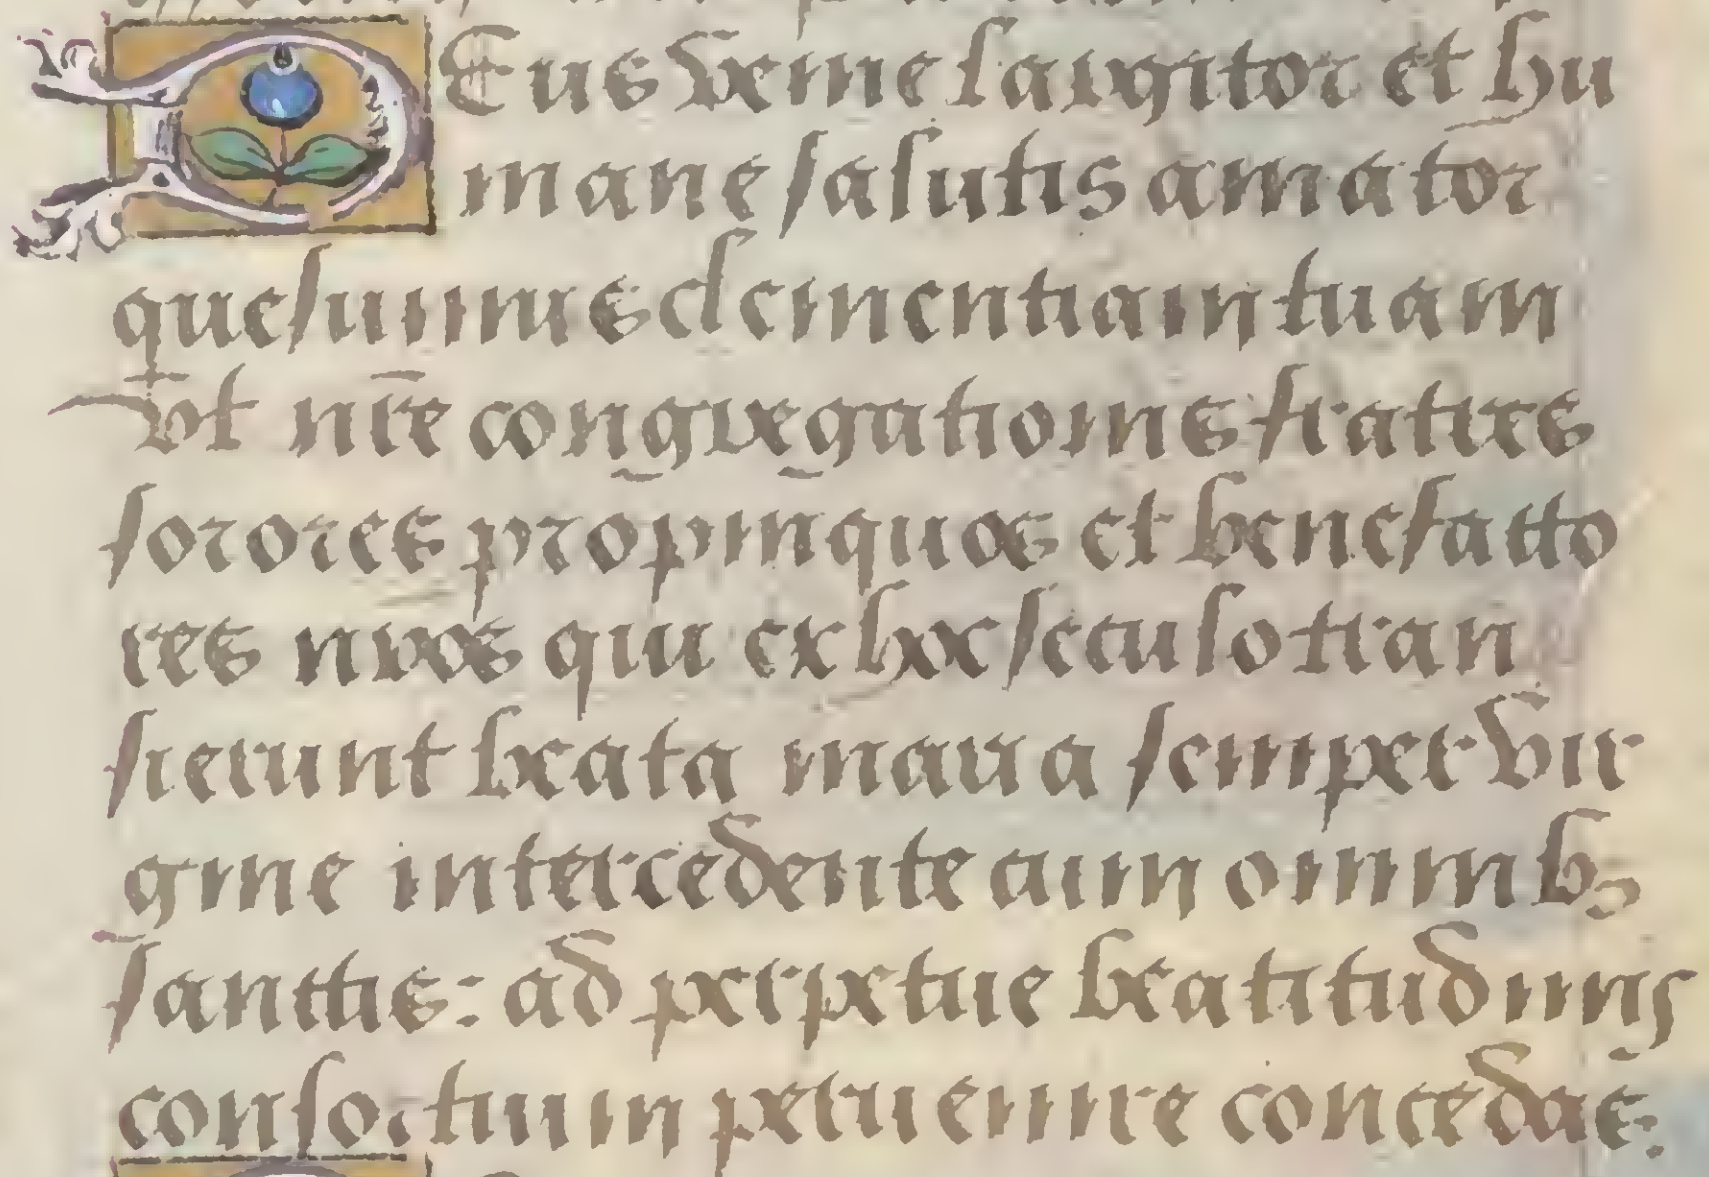 DEus venie largitor et hu
mane salutis amator
quesumus clementiam tuam
vt nr̄e congregationis fratres
sorores propinquos et benefacto
res nr̄os qui ex hoc seculo tran
sierunt beata maria semper vir
gine intercedente cum omnibꝫ
sanctis: ad perpetue beatitudinis
consortium peruenire concedas.